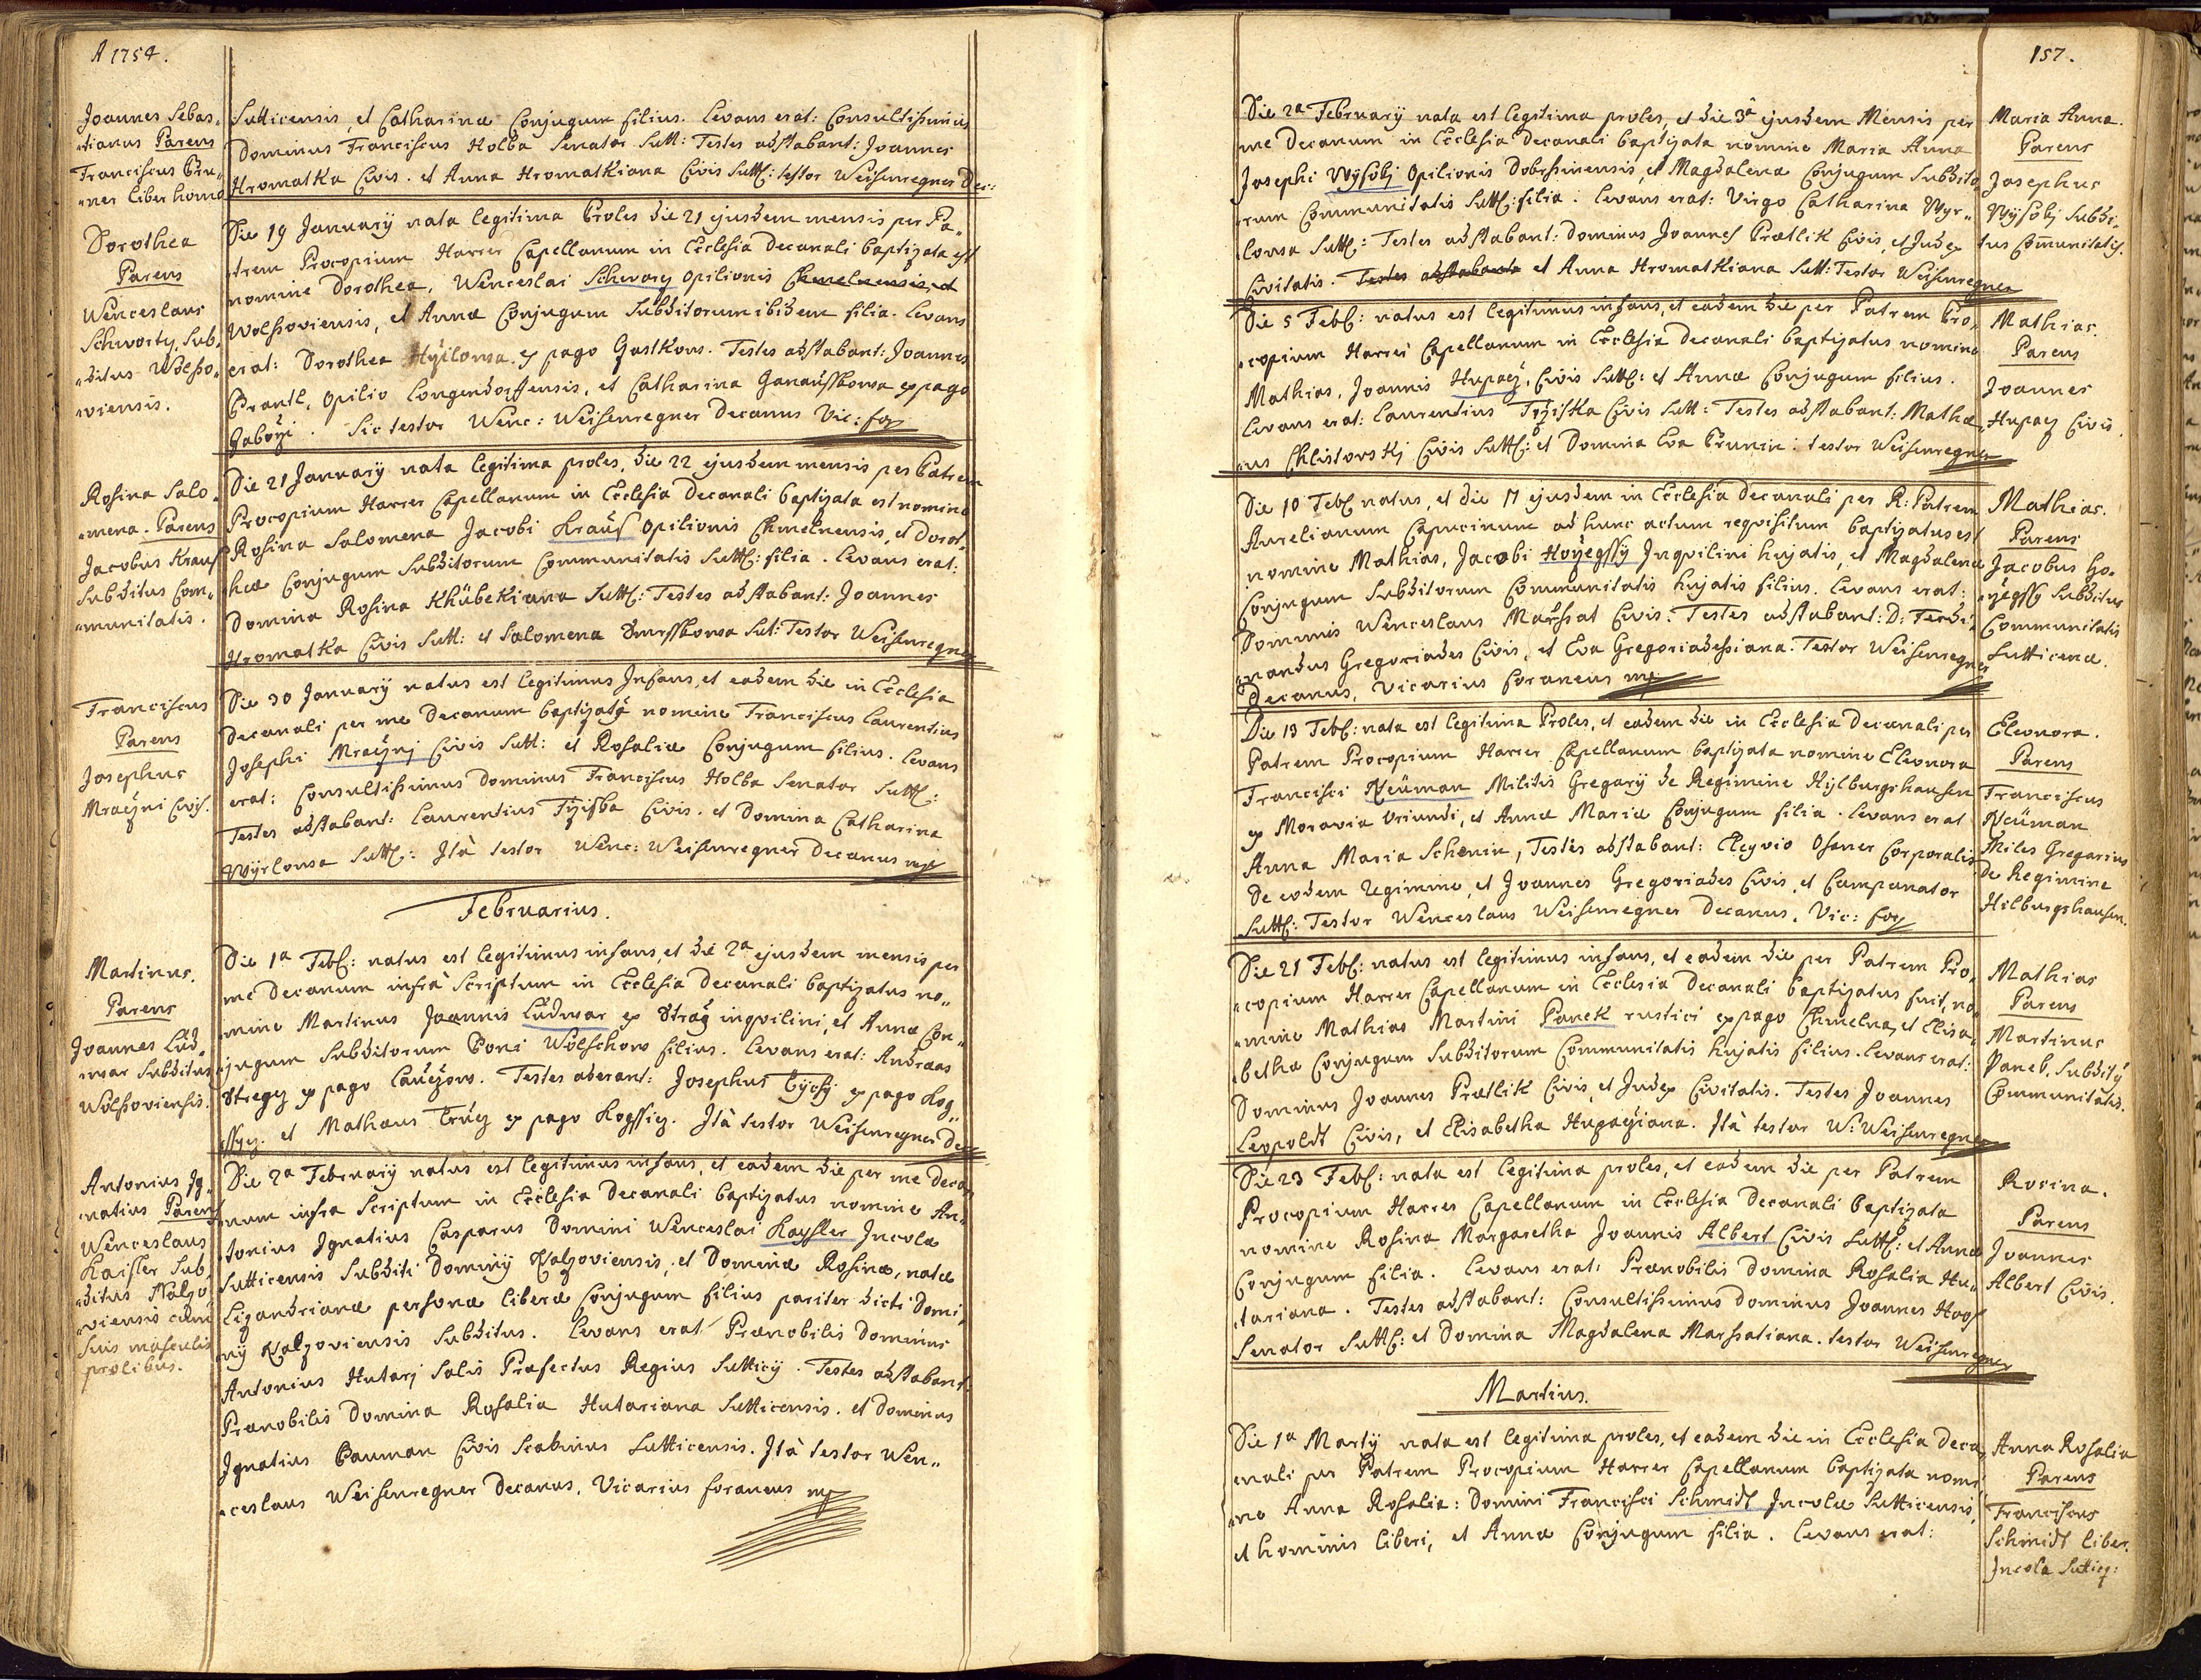 A 1754.
Joannes Sebas„
„tianus Parens
Franciscus Bru„
„ner liber homo
Sutticensis, et Catharinæ Conjugum filius. Levans erat: Consultissimus
Dominus Franciscus Holba Senator Sutt: Testes adstabant: Joannes
Hromatka Civis. et Anna Hromatkiana Civis Sutt: testor Weisenregner Dec:
Dorothea
Parens
Wenceslaus
Schworty, Sub„
„ditus Wolsso„
„viensis.
Die 19 Januarÿ nata legitima Proles die 21 ejusdem mensis per Pa„
„trem Procopium Harrer Capellanum in Ecclesia Decanali baptizata est
nomine Dorothea, Wenceslai Schwarz Opilionis Chmelnensis, et
Wolssoviensis, et Annæ Conjugum Subditorum ibidem filia. Levans
erat: Dorothea ex pago Gastkow. Testes adstabant: Joannes
Prantl, Opilio Longendorffensis, et Catharina Janaussk​owa ex pago
Sic testor Wenc: Weisenregner Decanus Vic: for
Rosina Salo„
„mena. Parens
Jacobus Kraus
Subditus Com„
„munitatis.
Die 21 Januarÿ nata legitima proles, die 22 ejusdem mensis per Patrem
Procopium Harrer Capellanum in Ecclesia Decanali baptizata est nomine
Rosina Salomena Jacobi Kraus Opilionis Chmelnensis, et Dorot„
heæ Conjugum Subditorum Communitatis Sutt: filia. Levans erat:
Domina Rosina Khübekiana Sutt: Testes adstabant: Joannes
Hromatka Civis Sutt: et Salomena Smrsskowa Sut: Testor Weisenregner
Franciscus
Parens
Josephus
Mraczni Civis.
Die 30 Januarÿ natus est legitimus Infans, et eadem die in Ecclesia
Decanali per me Decanum baptizatq nomine Franciscus Laurentius
Josephi Mracznj Civis Sutt: et Rosaliæ Conjugum filius. Levans
erat: Consultissimus Dominus Franciscus Holba Senator Sutt:
Testes adstabant: Laurentius Tziska Civis. et Domina Catharina
Wyrlowa Sutt: Ità testor Wenc: Weisenregner Decanus mp
Februarius.
Martinus.
Parens
Joannes Lud„
„war Subditus
Wolssoviensis.
Die 1a Feb: natus est legitimus infans, et die 2a ejusdem mensis per
me Decanum infrà Scriptum in Ecclesia Decanali baptizatus no„
„mine Martinus Joannis Ludwar ex Straz inqvilini, et Annæ Con„
„jugum Subditorum Boni Wolschow filius. Levans erat: Andræas
Stregcz ex pago Lauczow. Testes aderant: Josephus ex pago Kog„
„ssycz. et Mathæus ex pago Kogssicz. Ità testor Weisenregner Dec
Antonius Jg„
„natius Parens
Wenceslaus
Kaisler Sub„
„ditus Nalzo„
„viensis cum
suis masculis
prolibus.
Die 2a Februarÿ natus est legitimus infans, et eadem die per me Deca„
„num infra Scriptum in Ecclesia Decanali baptizatus nomine An„
„tonius Ignatius Casparus Domini Wenceslai Kaysler Incolæ
Sutticensis Subditi Dominÿ Nalzoviensis, et Dominæ Rosinæ, natæ
Ligandrianæ personæ liberæ Conjugum filius pariter dicti Domi„
„nÿ Nalzoviensis Subditus. Levans erat Prænobilis Dominus
Antonius Hutarj Salis Præfectus Regius Sutticÿ. Testes adstabant:
Prænobilis Domina Rosalia Hutariana Sutticensis. et Dominus
Ignatius Bauman Civis Scabinus Sutticensis. Ità testor Wen„
„ceslaus Weisenregner Decanus, Vicarius foraneus mp
157.
Die 2a Februarÿ nata est legitima proles, et die 3a ejusdem Mensis per
me Decanum in Ecclesia Decanali baptizata nomine Maria Anna
Josephi Wÿsokj Opilionis Dobrssinensis, et Magdalenæ Conjugum Subdito„
„rum Communitatis Sutt: filia. Levans erat: Virgo Catharina Wyr„
„lowa Sutt: Testes adstabant: Dominus Joannes Prætlik Civis, et Judex
Civitatis. Testes adstabant et Anna Hromatkiana Sutt: Testor Weisenregner
Maria Anna.
Parens
Josephus
Wÿsokj Subdi„
tus Comunitatis.
Die 5 Feb: natus est legitimus infans, et eadem die per Patrem Pro„
„copium Harrer Capellanum in Ecclesia Decanali baptizatus nomine
Mathias, Joannis Hupacz, Civis Sutt: et Annæ Conjugum filius.
Levans erat: Laurentius Tziska Civis Sutt: Testes adstabant: Mathæ„
„us Chlistovskj Civis Sutt: et Domina Eva Brunin: testor Weisenregner
Mathias.
Parens
Joannes
Hupacz Civis.
Die 10 Feb: natus, et die 11 ejusdem in Ecclesia Decanali per R: Patrem
Aurelianum Capucinum ad hunc actum reqvisitum baptizatus est
nomine Mathias, Jacobi Hoyegssy Inqvilini hujatis, et Magdalenæ
Conjugum Subditorum Communitatis hujatis filius. Levans erat:
Dominus Wenceslaus Marssat Civis. Testes adstabant: D: Ferdi„
„nandus Gregoriades Civis, et Eva Gregoriadesiana. Testor Weisenregner
Decanus, Vicarius foraneus mp
Mathias.
Parens
Jacobus Ho„
„yegssy Subditus
Communitatis
Sutticenæ.
Die 13 Feb: nata est legitima Proles, et eadem die in Ecclesia Decanali per
Patrem Procopium Harrer Capellanum baptizata nomine Eleonora
Francisci Neüman Militis Gregarÿ de Regimine Hÿlburgshausen
ex Moravia Oriundi, et Annæ Mariæ Conjugum filia. Levans erat
Anna Maria Schenin, Testes adstabant: Osaner Corporalis
De eodem regimine, et Joannes Gregoriades Civis, et Campanator
Sutt: Testor Wenceslaus Weisenregner Decanus, Vic: for
Eleonora.
Parens
Franciscus
Neüman
Miles Gregarius
De Regimine
Hilburgshausen.
Die 21 Feb: natus est legitimus infans, et eadem die per Patrem Pro„
„copium Harrer Capellanum in Ecclesia Decanali baptizatus fuit, no„
„mine Mathias Martini Panek rustici ex pago Chmelna, et Elisa„
„bethæ Conjugum Subditorum Communitatis hujatis filius. Levans erat:
Dominus Joannes Prætlik Civis, et Judex Civitatis. Testes Joannes
Leopoldt Civis, et Elisabetha Hupacziana. Ità testor W: Weisenregner
Mathias
Parens
Martinus
Panek, Subditq
Communitatis.
Die 23 Feb: nata est legitima proles, et eadem die per Patrem
Procopium Harrer Capellanum in Ecclesia Decanali baptizata
nomine Rosina Margaretha Joannis Albert Civis Sutt: et Annæ
Conjugum filia. Levans erat: Prænobilis Domina Rosalia Hu„
„tariana. Testes adstabant: Consultissimus Dominus Joannes Hoos
Senator Sutt: et Domina Magdalena Marssatiana. testor Weisenregner
Rosina.
Parens
Joannes
Albert Civis.
Martius.
Die 1a Martÿ nata est legitima proles, et eadem die in Ecclesia Deca„
„nali per Patrem Procopium Harrer Capellanum baptizata nomi„
„ne Anna Rosalia: Domini Francisci Schmidt Incolæ Sutticensis,
et hominis liberi, et Annæ Conjugum filia. Levans erat:
Anna Rosalia
Parens
Franciscus
Schmidt liber.
Incola Sutticz: